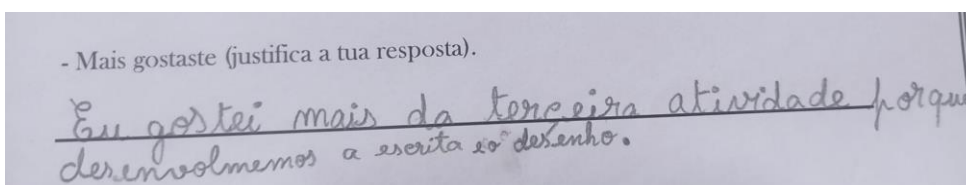 - Mais gostaste (justifica a tua resposta).
Eu gostei mais da terceira atividade porqu
desenvolmemos a escrita e o desenho.